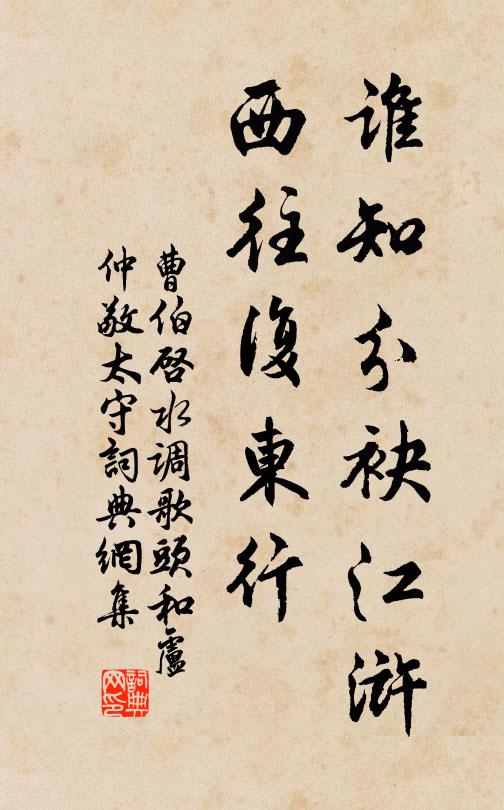 誰知分袂江滸
西往復東行
曹伯啓水调歌頭和盧
仲敬太守詞典網集
詞典
网印